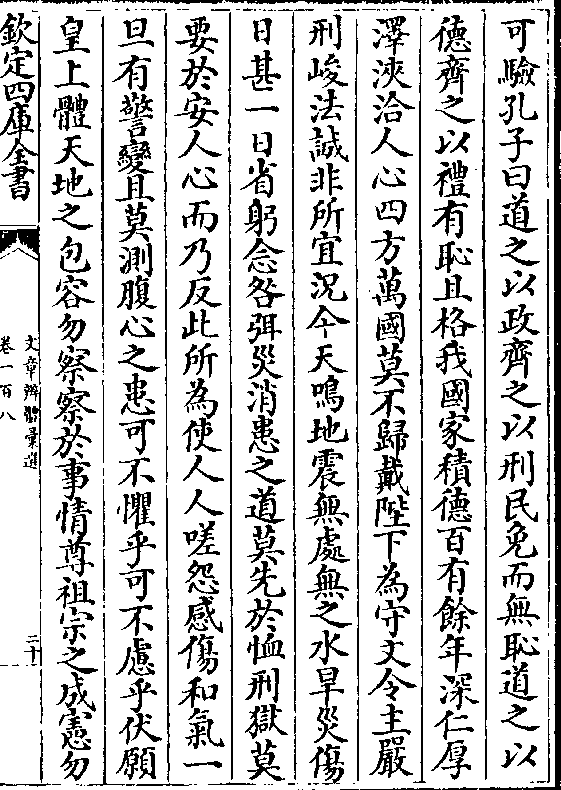 可驗孔子曰道之以政齊之以刑民免而無恥道之以
德齊之以禮有恥且格我國家積德百有餘年深仁厚
澤浹洽人心四方萬國莫不歸戴陛下為守文令主嚴
刑峻法誠非所宜況今天鳴地震無處無之水旱災傷
日甚一日省躬念咎弭災消患之道莫先於恤刑獄莫
要於安人心而乃反此所為使人人嗟怨感傷和氣一
旦有警變且莫測腹心之患可不懼乎可不慮乎伏願
皇上體天地之包容勿察察於事情尊祖宗之成憲勿
欽定四庫全書
文章辨體彙選
卷一百八
二十